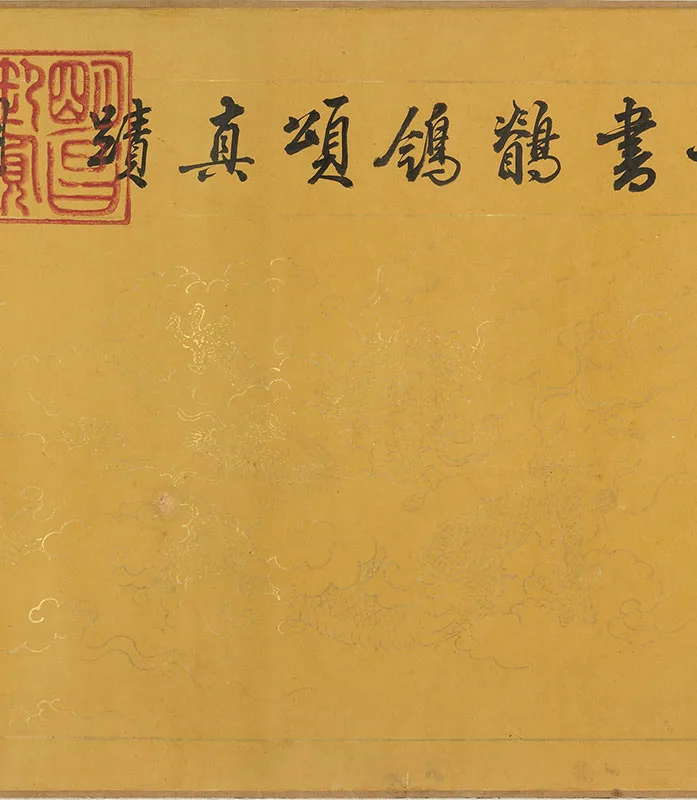 書鶺鴒頌真蹟